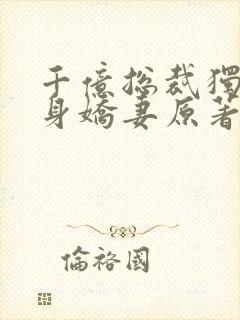 千億总裁獨
身嬌妻原著
倫裕國